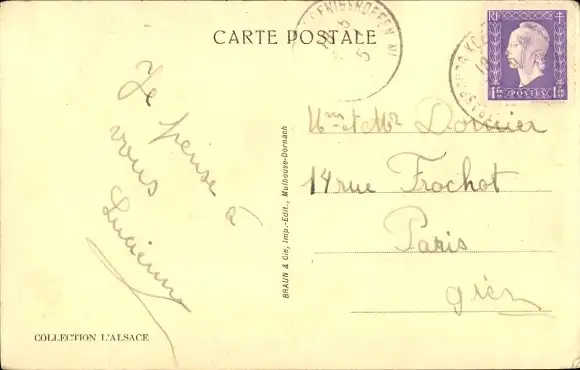 CARTE POSTALE
RF
1F50
POSTES
1F50
Je pense à
vous
Lucienne
Mme et Mr Dornier
14 rue Frochot
Paris
BRAUN & Cie, Imp.-Edit., Mulhouse-Dornach
COLLECTION L'ALSACE